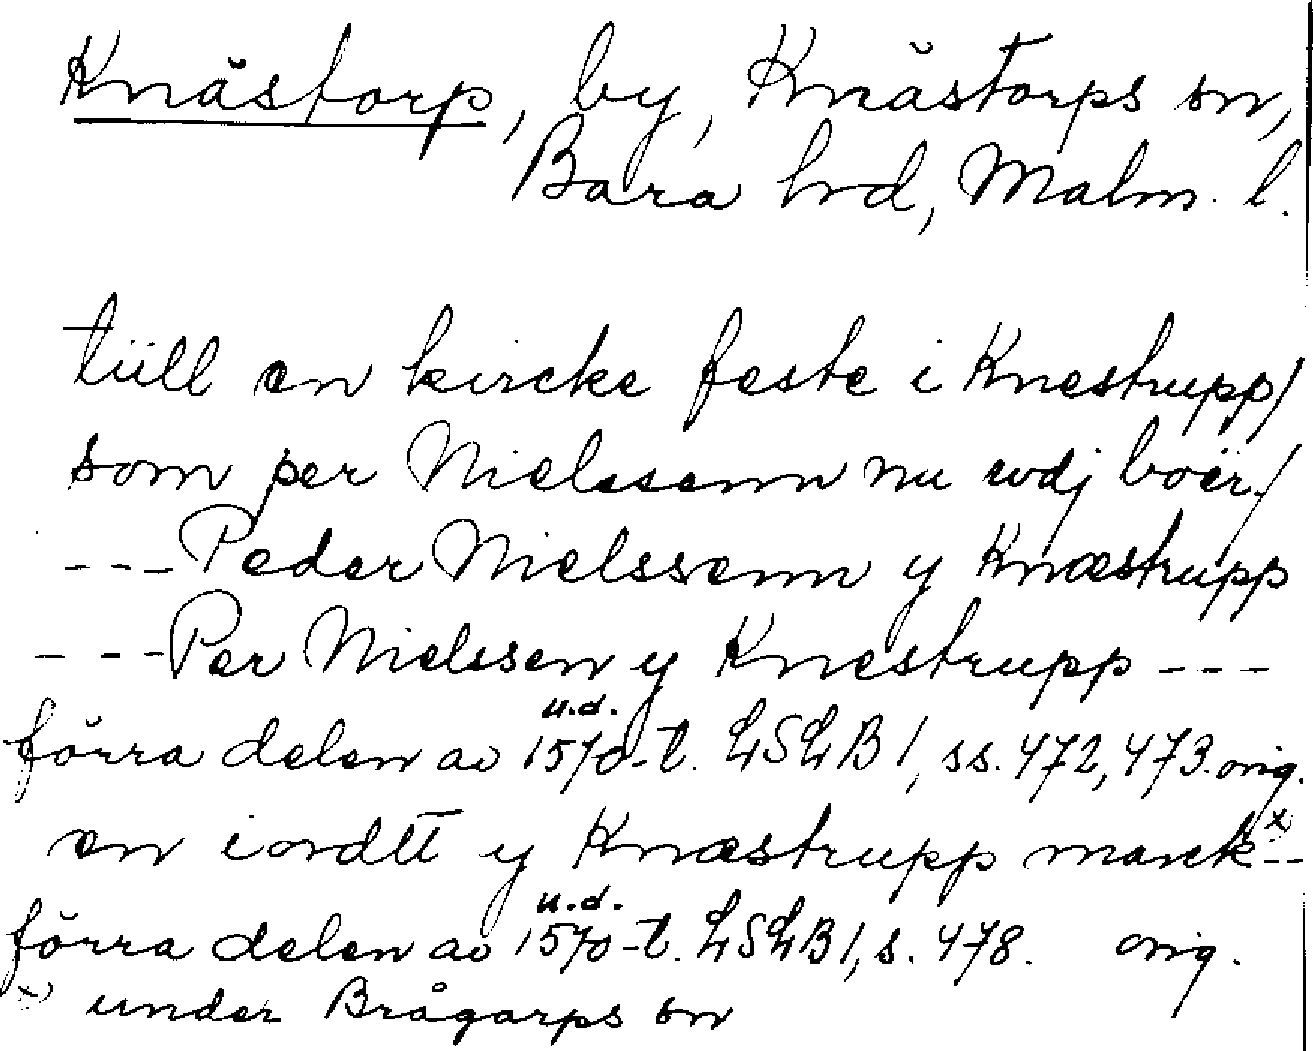 Knästorp, by, Knästorps sn,
Bara hrd, Malm. l.
tiill en kircke feste i Knestrupp/
som per Nielssenn nu wdj boer/
---Peder Nielssenn y Knæstrupp
---Per Nielssen y Knestrupp---
u.d.
förra delen av 1570-t. LSLB 1, ss. 472, 473. orig.
en iordtt y Knæstrupp marck x)--
u.d.
förra delen av 1570-t. LSLB 1, s. 478. orig.
x) under Brågarps sn